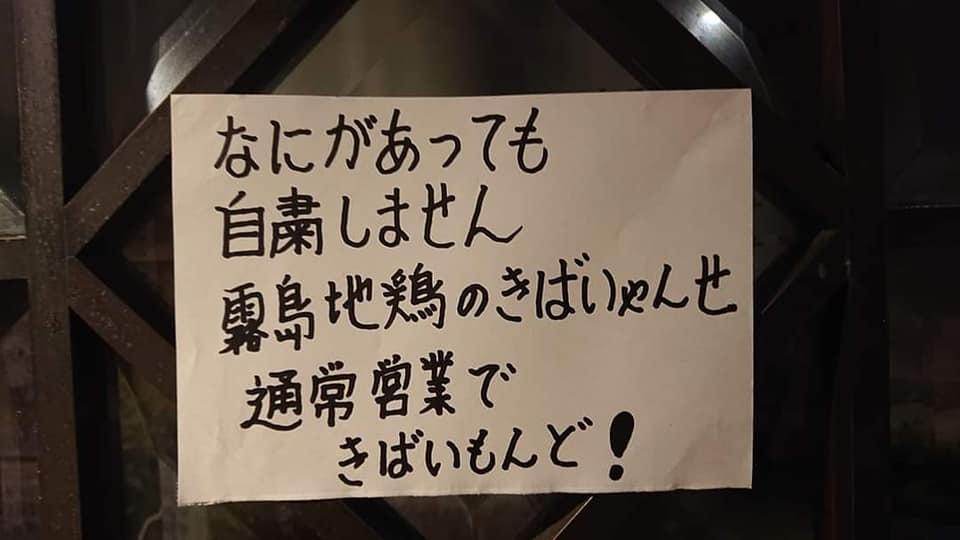 なにがあっても
自粛しません
霧島地鶏のきばいやんせ
通常営業で
きばいもんど!